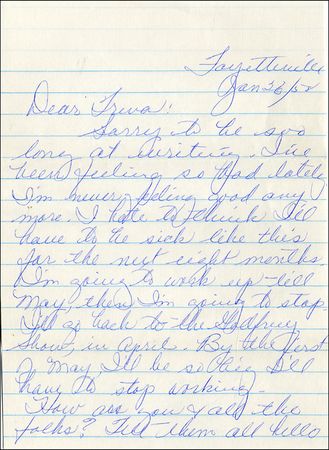 Fayetteville
Jan 26/52
Dear Treva:
Sorry to be soo
long at writing. I've
been feeling so bad lately
I'm never feling good any
more. I hate to think I'll
have to be sick like this
for the next eight months
I'm going to work up-till
May, then I'm going to stop
I'll go back to the Godfrey
Show, in April. By the first
of May I'll be so big I'll
have to stop working.
How are you & all the
folks? Tell them all hello